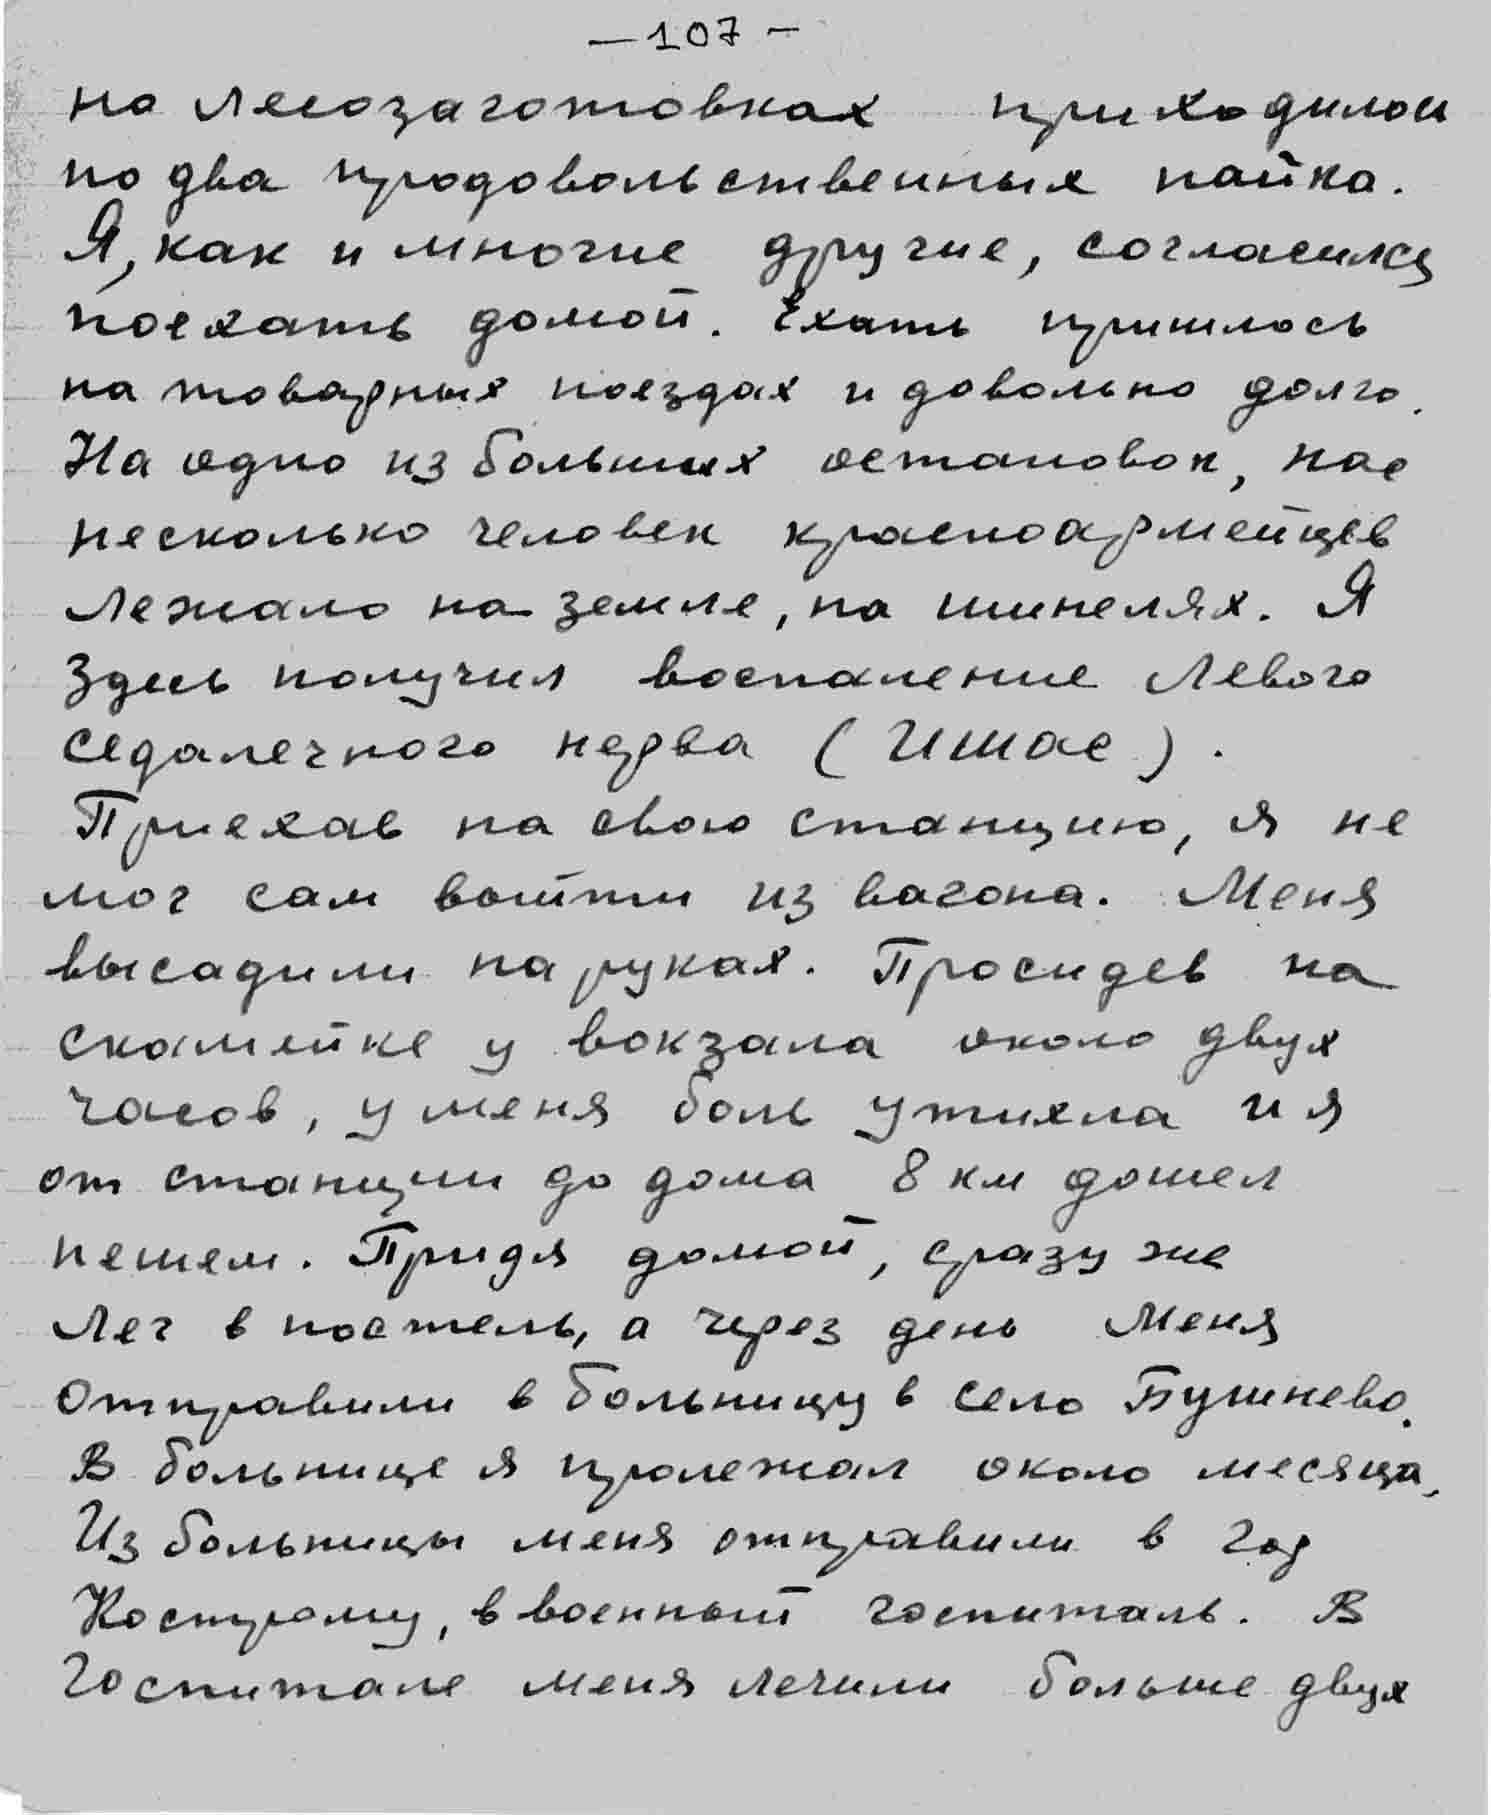 — 107 —
на лесозаготовках приходилось
по два продовольственных пайка.
Я, как и многие другие, согласился
поехать домой. Ехать пришлось
на товарных поездах и довольно долго.
На одно из больших остановок, нас
несколько человек красноармейцев
лежало на земле, на шинелях. Я
здесь получил воспаление левого
седалечного нерва (Ишас).
Приехав на свою станцию, я не
мог сам выйти из вагона. Меня
высадили на руках. Просидев на
скамейке у вокзала около двух
часов, у меня боль утихла и я
от станции до дома 8 км дошел
пешем. Придя домой, сразу же
лег в постель, а через день меня
отправили в больницу в село Бушнево.
В больнице я пролежал около месяца,
Из больницы меня отправили в гор
Кострому, в военный госпиталь. В
госпитале меня лечили больше двух